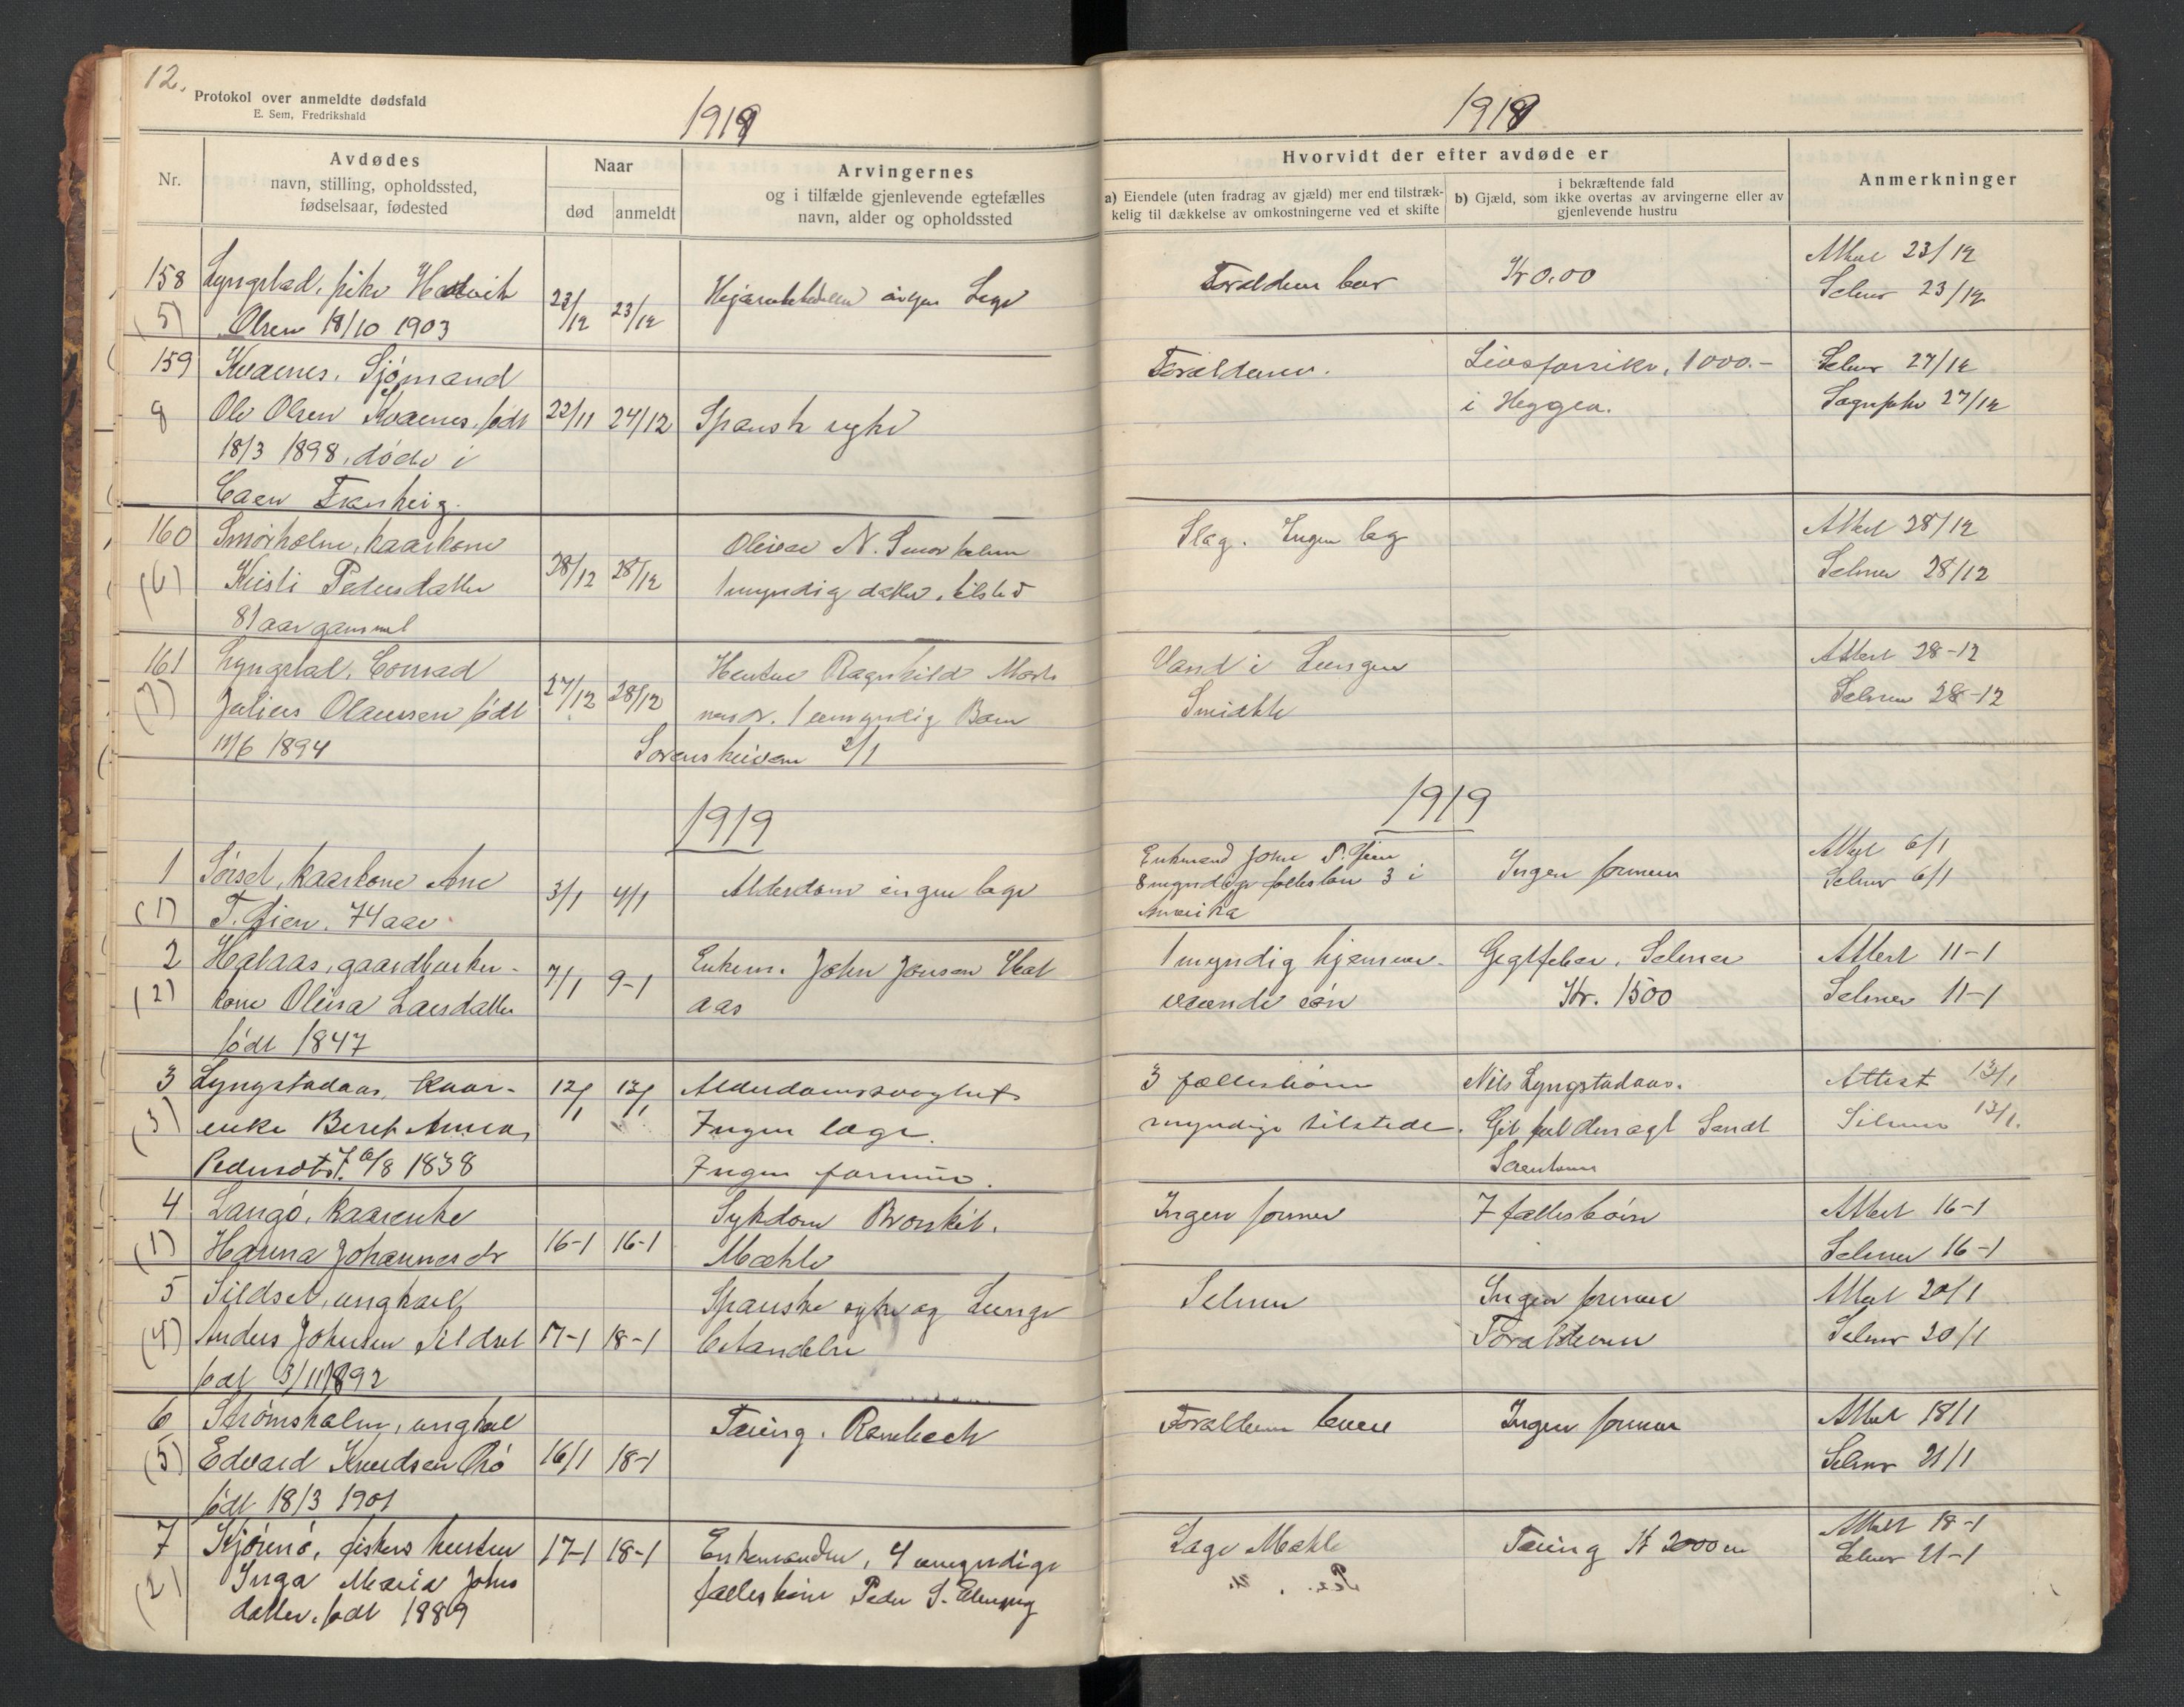 12.
Protokol over anmeldte dødsfald
E. Sem, Fredrikshald
1919
Nr.
Avdødes
navn, stilling, opholdssted,
fødselsaar, fødested
Naar
død
anmeldt
Arvingernes
og i tilfælde gjenlevende egtefælles
navn, alder og opholdssted
158
Lyngstad, pike
(5)
Olsen 18/10 1903
23/12
23/12
ingen Lege
159
Kvaenes. Sjømand
8
Ole Olsen Kvaenes, født
22/11
24/12
Spansk syke
18/3 1898, døde i
Caen Frankrig.
160
Smørholm, kaarkone
(6)
Kristi Pedersdatter
28/12
28/12
81 aar gammel
Smorholm
1 myndig datter, tilsted
161
Lyngstad, Conrad
(7)
Julius Olaussen født
27/12
28/12
11/6 1894
Hustru Ragnhild
1 umyndig Barn
Sorenskriveren 2/1
1919
1
Sørset, kaarkone Ane
(1)
74 aar
3/1
4/1
Alderdom ingen lege
2
Hataas, gaardbruker-
(2)
kone Olina Larsdatter
født 1847
7/1
9-1
Enkem. John Jonsen Hat
aas
3
Lyngstadaas, Kaar-
(3)
enke Beret Anna
Pedersdtr. f. 6/8 1838
12/1
13/1
Alderdomssvaghet
Ingen læge.
Ingen formue.
4
Langø, kaarenke
(1)
Hanna Johannesdr
16-1
16-1
Sykdom Bronkit.
Mæhle
5
Sildset, ungkarl
(4)
Anders Johnsen Sildset
født 3/11 1892
17-1
18-1
Spanske syke og Lunge
betændelse
6
Strømsholm, ungkarl
(5)
Edvard Knudsen
født 18/3 1901
16/1
18-1
Tæring. Rambech
7
fiskers hustru
(2)
Inga Maria Johns
datter. født 1889
17-1
18-1
Enkemanden, 4 umyndige
fællesbørn Peder S.
1918
Hvorvidt der efter avdøde er
a) Eiendele (uten fradrag av gjæld) mer end tilstræk-
kelig til dækkelse av omkostningerne ved et skifte
i bekræftende fald
b) Gjæld, som ikke overtas av arvingerne eller av
gjenlevende hustru
Anmerkninger
Forældrene lever
Kr 0.00
Attest 23/12
Selmer 23/12
Forældrene.
Livsforsikr. 1000.-
i Heggen.
Selmer 27/12
27/12
Slag. Ingen læg
Attest 28/12
Selmer 28/12
Vand i Lungen
Attest 28-12
Selmer 28-12
1919
Enkemand John
8 myndige fællesbørn 3 i
Amerika
Ingen formue
Attest 6/1
Selmer 6/1
1 myndig hjemmev-
ærende søn
Gigtfeber. Selmer
Kr. 1500
Attest 11-1
Selmer 11-1
3 fællesbørn
myndige tilstede.
Nils Lyngstadaas.
Attest 13/1
Selmer 13/1.
Ingen formue
7 fællesbørn
Attest 16-1
Selmer 16-1
Selmer
Ingen formue
Forældrene
Attest 20/1
Selmer 20/1
Forældrene lever
Ingen formue
Attest 18/1
Selmer 21/1
Læge Mæhle
Tæring Kr 2000
Attest 18-1
Selmer 21-1